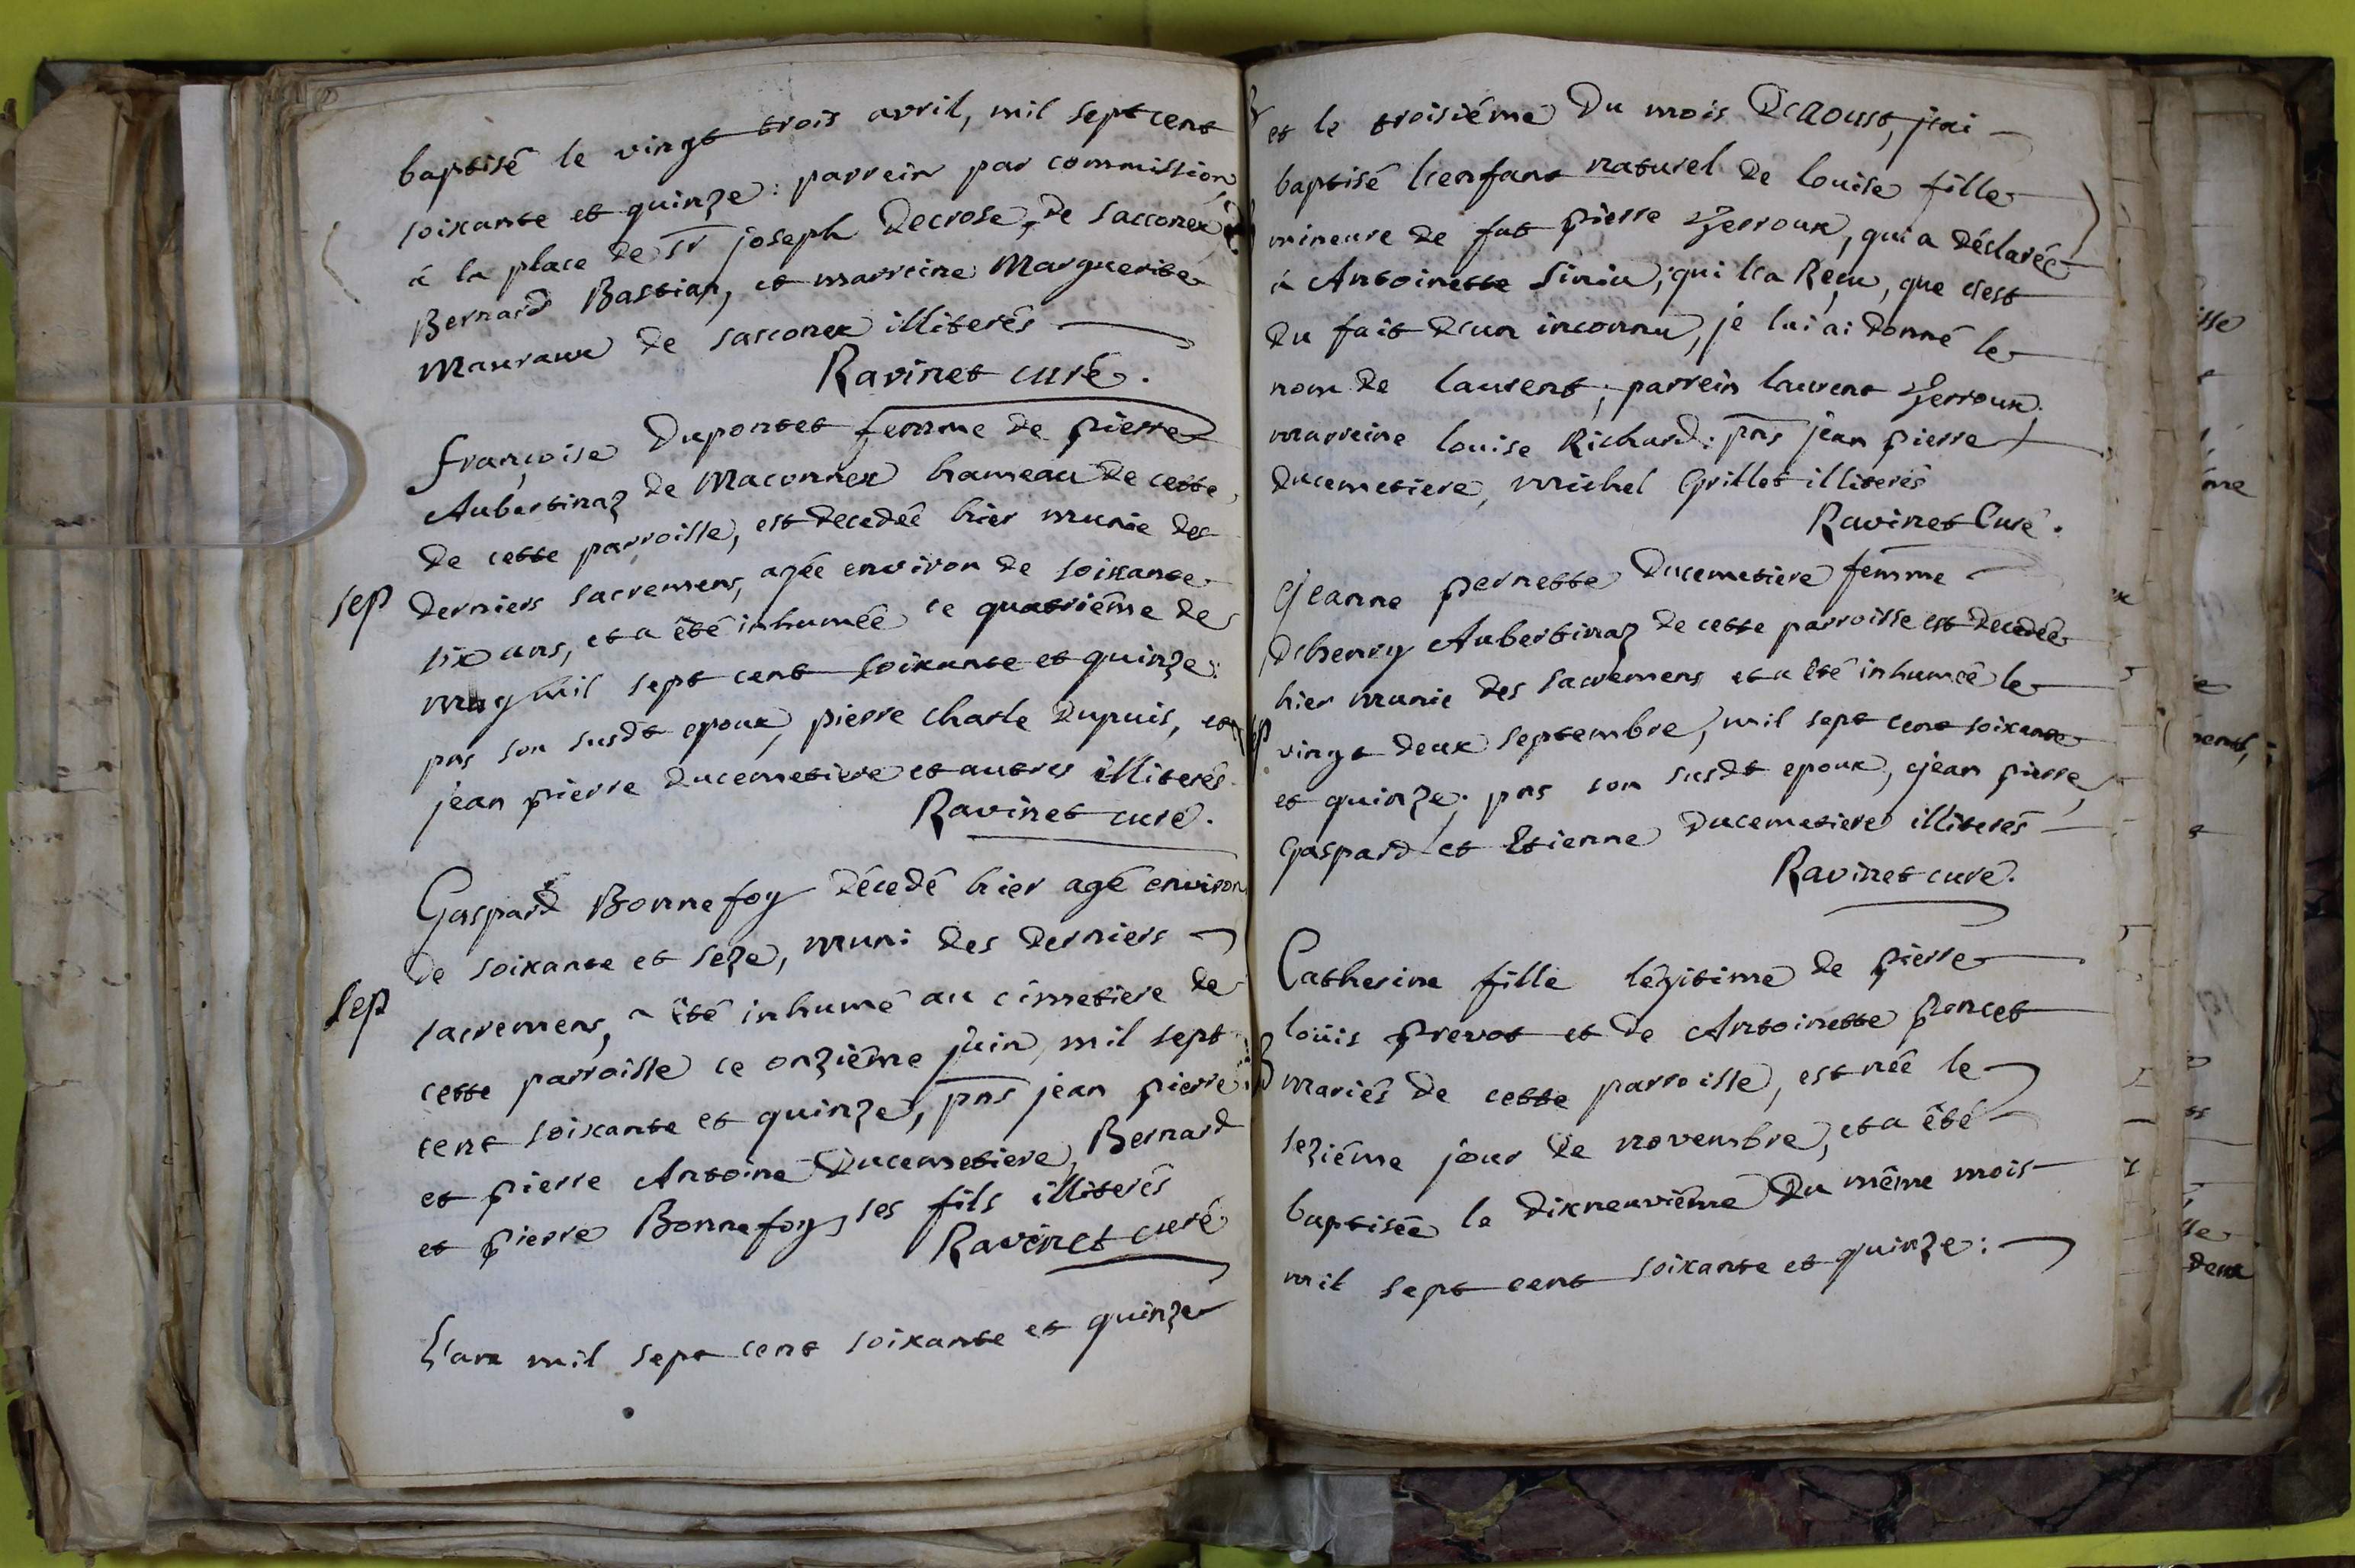 baptisé le vingt trois avril, mil sept cent
soixante et quinze: parrein par commission
à la place de Sr joseph Decrose, de sacconex
Bernard Bastian, et marreine Marguerite
Mauraux de sacconex illiterés
Ravinet curé.
françoise Duponset femme de pierre
Aubertinaz de Maconnex hameau de cette
de cette parroisse, est decedée hier munie des
sep
derniers sacremens, agée environ de soixante
six ans, et a été inhumée ce quatriême de
may mil sept cent soixante et quinze:
pns son susdt epoux, pierre charle Dupuis, et
jean pierre Ducemetiere et autres illiterés.
Ravinet curé.
Gaspard Bonnefoy décedé hier agé environ
de soixante et seze, muni des derniers
sep
sacremens, a été inhumé au cimetiere de
cette parroisse ce onziême juin, mil sept
cent soixante et quinze, pns jean pierre
et pierre Antoine Ducemetiere, Bernard
et pierre Bonnefoy ses fils illiterés
Ravinet curé
L'an mil sept cent soixante et quinze
et le troisiéme Du mois D'Aoust, j'ai
baptisé l'enfant naturel de louise fille
mineure de fut pierre Verroux, qui a déclaréé
à Antoinette, qui l'a Reçu, que c'est
Du fait d'un inconnu, je lui ai donné le
nom de laurent; parrein laurent Verroux,
marreine louise Richard: pns jean pierre
Ducemetiere, michel Grillet illiterés
Ravinet Curé.
Jeanne pernette Ducemetiere femme
D'henry Aubertinaz de cette parroisse est decedée
hier munie des sacremens et a été inhumée le
sep
vingt deux septembre, mil sept cent soixante
et quinze; pns son susdt epoux, jean pierre,
Gaspard et Etienne Ducemetiere illiterés
Ravinet curé.
Catherine fille légitime de pierre
loüis prevot et de Antoinette poncet
mariés de cette parroisse, est née le
seziéme jour de novembre, et a été
baptisée le dixneuviême Du même mois
mil sept cent soixante et quinze: